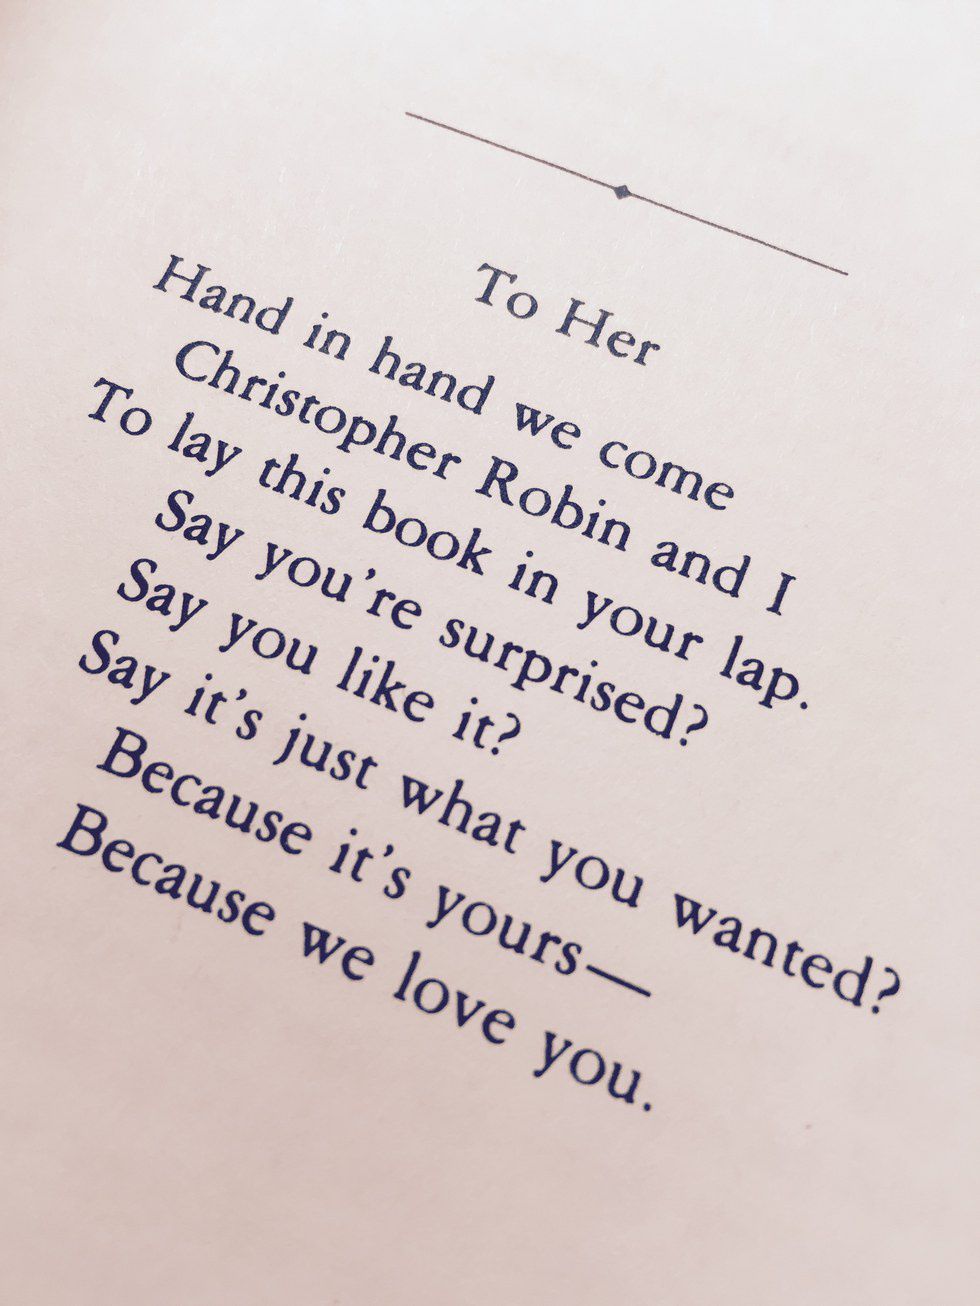 To Her
Hand in hand we come
Christopher Robin and I
To lay this book in your lap.
Say you're surprised?
Say you like it?
Say it's just what you wanted?
Because it's yours—
Because we love you.